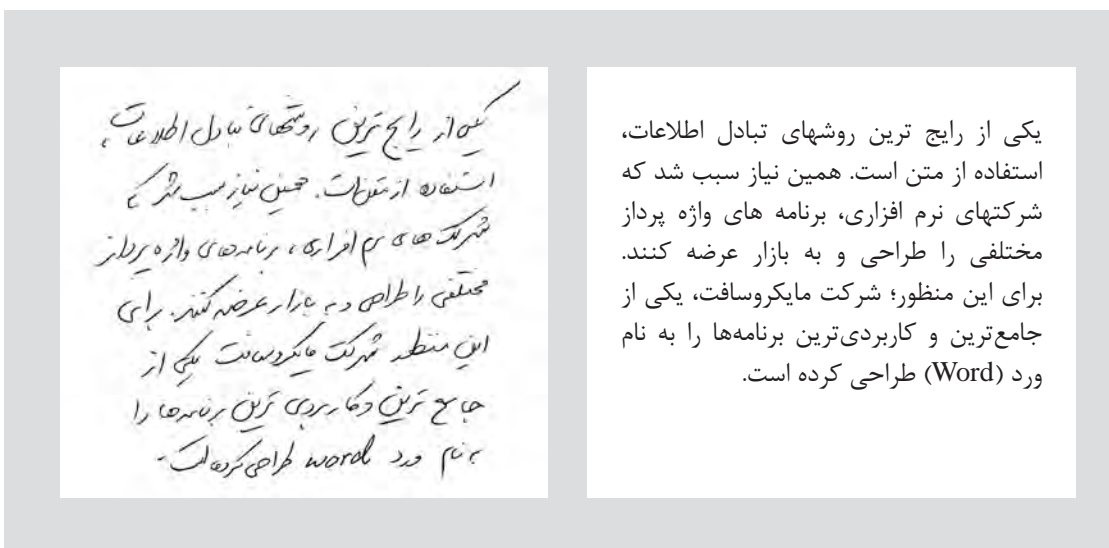 یکی از رایج ترین روشهای تبادل اطلاعات،
استفاده از متن است. همین نیاز سبب شد که
شرکتهای نرم افزاری، برنامه های واژه پرداز
مختلفی را طراحی و به بازار عرضه کنند.
برای این منظور؛ شرکت مایکروسافت، یکی از
جامع‌ترین و کاربردی‌ترین برنامه‌ها را به نام
ورد (Word) طراحی کرده است.
یکی از رایج ترین روشهای تبادل اطلاعات،
استفاده از متن است. همین نیاز سبب شد که
شرکت های نرم افزاری، برنامه های واژه پرداز
مختلفی را طراحی و به بازار عرضه کنند. برای
این منظور شرکت مایکروسافت یکی از
جامع ترین و کاربردی ترین برنامه ها را
به نام ورد word طراحی کرده است.